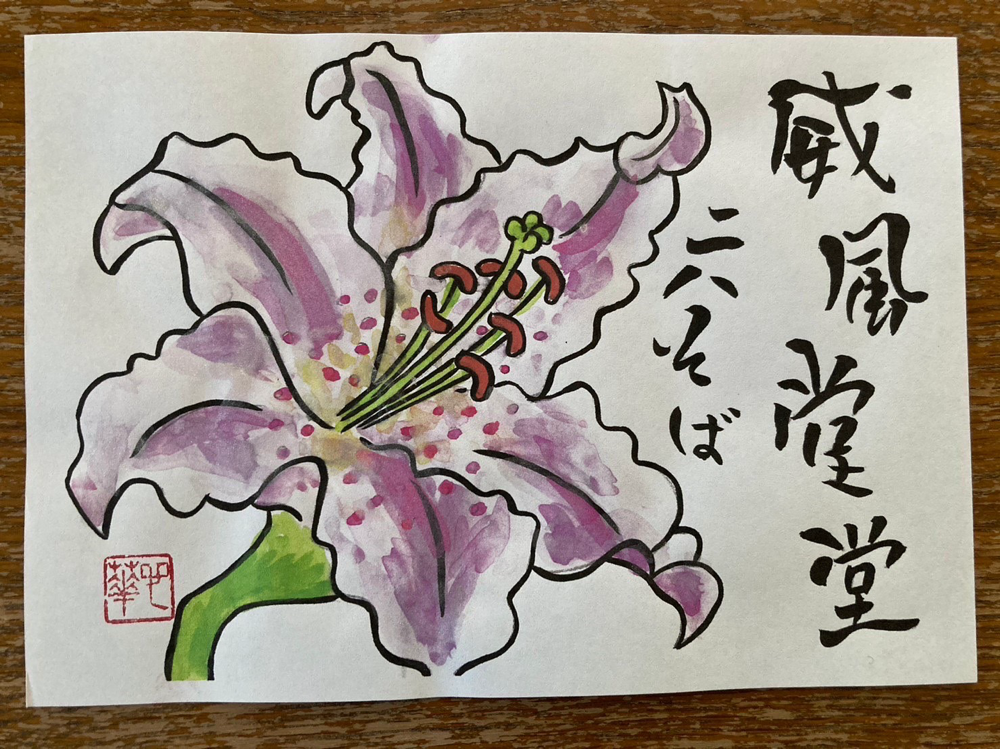 威風堂堂
二八そば
華